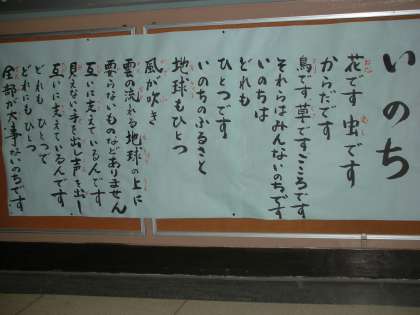 いのち
花です 虫です
からだです
鳥です 草です こころです
それらはみんないのちです
いのちは
どれも
ひとつです
いのちのふるさと
地球もひとつ
風が吹き
雲の流れる地球の上に
要らないものなどありません
互いに支えているんです
見えない手を出し声を出し
互いに支えているんです
どれもひとつで
どれにもひとつ
全部が大事ないのちです